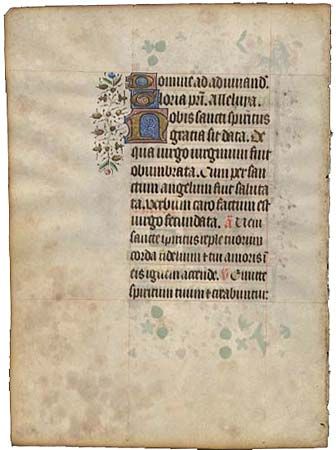 Domine ad adiuuand.
Gloria pri. Alleluia.
Nobis sancti spiritus
gratia sit data. De
qua uirgo uirginum fuit
obumbrata. Cum per san
ctum angelum fuit saluta
ta. Verbum caro factum est
uirgo fecundata. A Veni
sancte spiritus reple tuorum
corda fidelium & tui amoris ī
eis ignem accende. V Emitte
spiritum tuum & creabuntur.